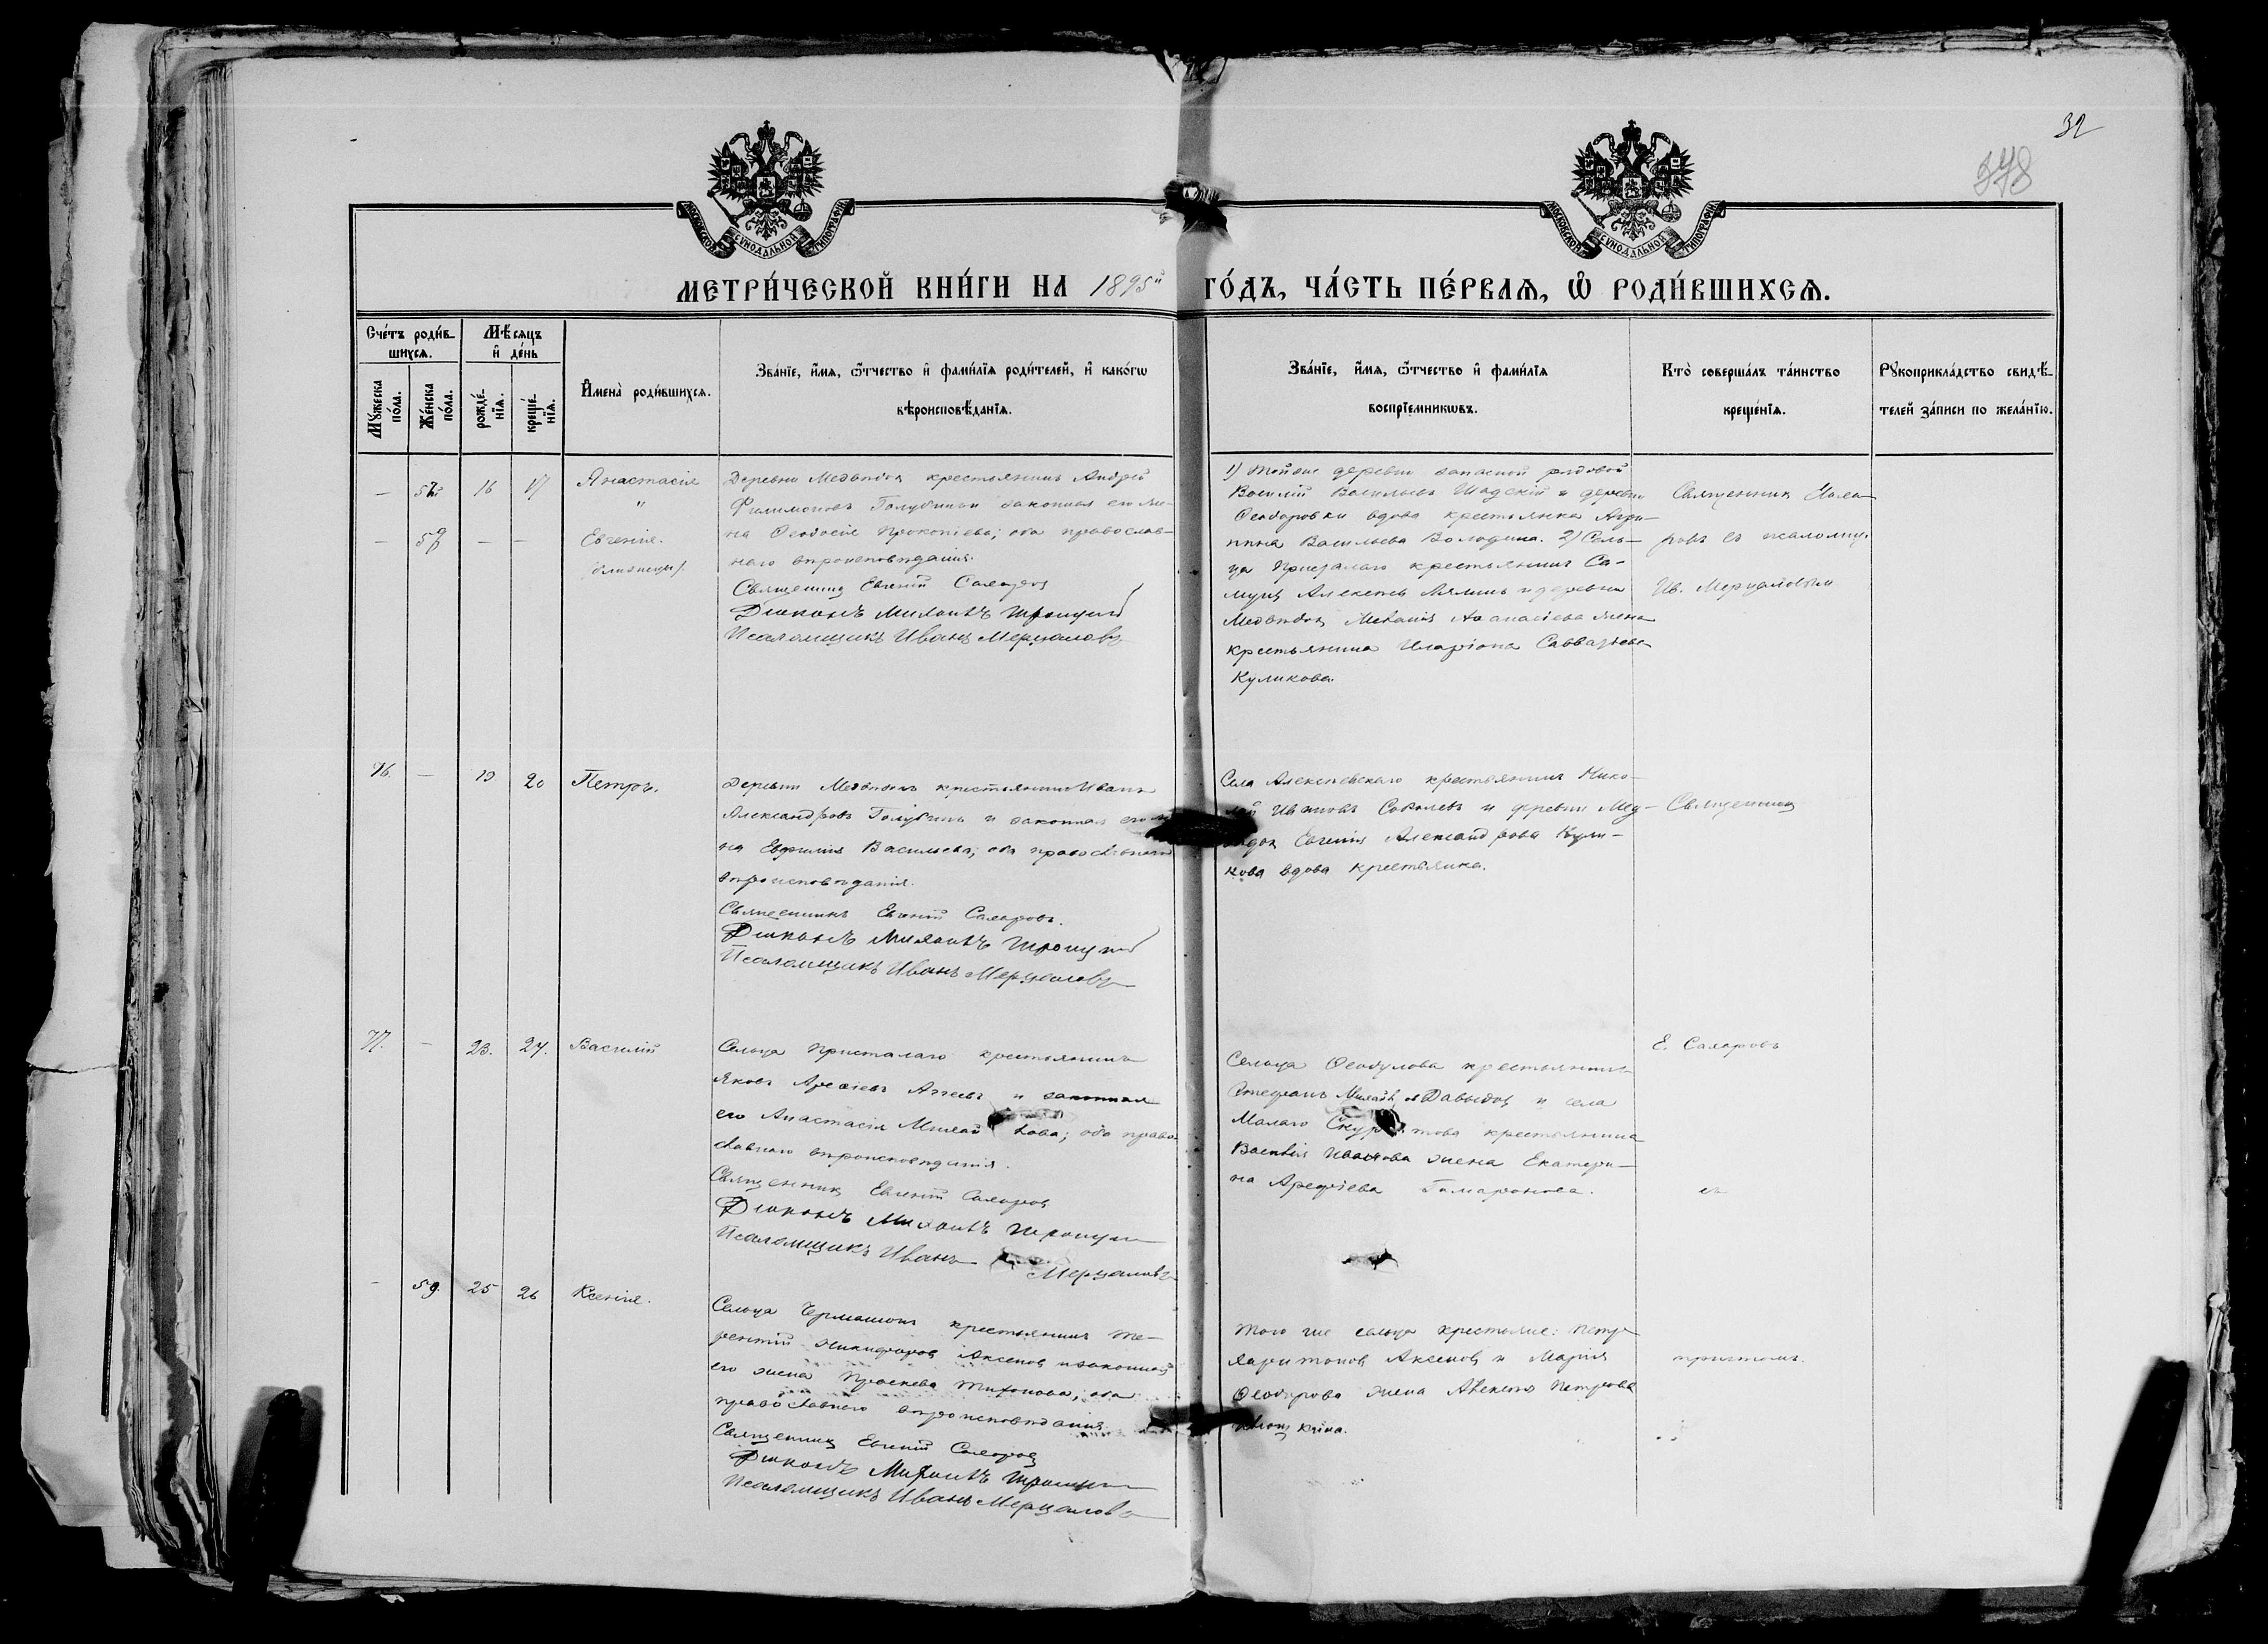 32
378
МОСКОВСКОЙ СѴНОДАЛЬНОЙ ТИПОГРАФІИ
МОСКОВСКОЙ СѴНОДАЛЬНОЙ ТИПОГРАФІИ
МЕТРИ́ЧЕСКОЙ КНИ́ГИ НА 1895й ГО́ДЪ, ЧА́СТЬ ПЕ́РВАѦ, Ѽ РОДИ́ВШИХСѦ.
Сче́тъ роди́в-
шихсѧ.
Мѣ́сѧцъ
и҆ де́нь
Мꙋ́жеска
по́ла.
Же́нска
по́ла.
рожде́-
нїѧ.
креще́-
нїѧ.
И҆мена̀ роди́вшихсѧ.
Зва́нїе, и҆́мѧ, ѻ҆́тчество и҆ фами́лїѧ роди́телей, и҆ како́гѡ
вѣроисповѣ́данїѧ.
Зва́нїе, и҆́мѧ, ѻ҆́тчество и҆ фами́лїѧ
воспрїе́мникѡвъ.
Кто̀ соверша́лъ та́инство
креще́нїѧ.
Рꙋкоприкла́дство свидѣ́-
телей за́писи по жела́нїю.
— 57й 16 17 Анастасія
"
— 58 — — Евгенія.
(близнецы).
Деревни Медвѣдок крестьянинъ Андрей
Филимоновъ Голубинъ и законная его же-
на Ѳеодосія Прокопіева; оба православ-
наго вѣроисповѣданія.
Священникъ Евгеній Сахаровъ
Діаконъ Михаилъ Троицкій
Псаломщикъ Иванъ Мерцаловъ
1) Той же деревни запасной рядовой
Василій Васильевъ Шадскій и деревни
Ѳеодоровки вдова крестьянка Агри-
пина Васильева Володина. 2) Сель-
ца Присталаго крестьянинъ Са-
муил Алексѣевъ Лялинъ и деревни
Медвѣдок Меланія Аѳанасіева жена
крестьянина Иларіона Савватѣева
Куликова.
Священник Саха-
ровъ съ псаломщ.
Ив. Мерцаловым
76. — 19 20 Петръ.
Деревни Медвѣдокъ крестьянинъ Иванъ
Александровъ Голубинъ и законная его же
на Евфимія Васильева; оба православнаго
вѣроисповѣданія.
Священникъ Евгеній Сахаровъ.
Діаконъ Михаилъ Троицкій
Псаломщикъ Иванъ Мерцаловъ
Села Алексѣевскаго крестьянинъ Нико-
лай Ивановъ Соболевъ и деревни Мед-
вѣдок Евгенія Александрова Кули-
кова вдова крестьянка.
Священник
77. — 23. 24. Василій
Сельца Присталаго крестьянинъ
Яковъ Арсѣіевъ Агѣевъ и законная
его Анастасія Михайлова; оба право-
славнаго вѣроисповѣданія.
Священник Евгеній Сахаров
Діаконъ Михаилъ Троицкій
Псаломщикъ Иванъ
Мерцаловъ
Сельца Ѳеодулова крестьянинъ
Стефанъ Михайлов Давыдов и села
Малаго Скуратова крестьянина
Василія Иванова жена Екатери-
на Арефіева
Е. Сахаровъ
съ
— 59. 25 26 Ксенія.
Сельца Чермошон крестьянинъ Те-
рентій Никифоров Аксенов и законная
его жена Праскева Тихонова; оба
православнаго вѣроисповѣданія
Священник Евгеній Сахаров
Діаконъ Михаилъ Троицкій
Псаломщикъ Иванъ Мерцаловъ
Того же сельца крестьяне: Петръ
Харитонов Аксенов и Марія
Ѳеодорова жена Алексѣя Петрова
причтомъ.